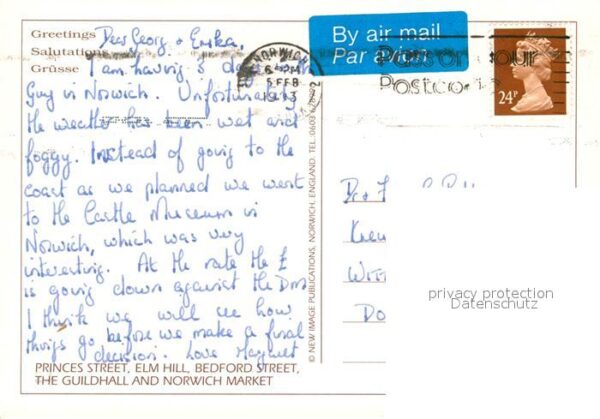 Greetings
Salutations
Grüsse
Dear Georg & Erika,
I am having 3 days with
Guy in Norwich. Unfortunately
the weather has been wet and
foggy. Instead of going to the
coast as we planned we went
to the Castle Museum in
Norwich, which was very
interesting. At the rate the £
is going down against the Dm
I think we will see how
things go before we make a final
decision. Love Margaret
PRINCES STREET, ELM HILL, BEDFORD STREET,
THE GUILDHALL AND NORWICH MARKET
© NEW IMAGE PUBLICATIONS, NORWICH, ENGLAND. TEL: 0603
By air mail
Par avion
NORWICH
PM
5 FEB
Pass on your
Postcode
24P
privacy protection
Datenschutz